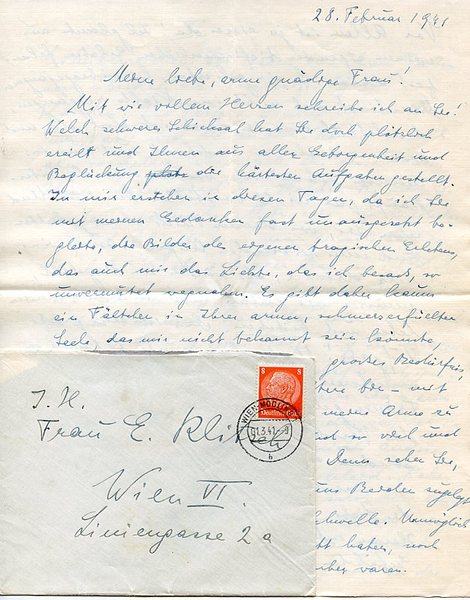 28. Februar 1941
Meine liebe, arme gnädige Frau!
Mit wie vollem Herzen schreibe ich an Sie!
Welch schweres Schicksal hat Sie doch plötzlich
ereilt und Ihnen aus aller Geborgenheit und
Beglückung die härtesten Aufgaben gestellt.
In mir erstehen in diesen Tagen, da ich Sie
mit meinen Gedanken fast unausgesetzt be-
gleite, die Bilder des eigenen tragischen Erlebens,
das auch mir das Liebste, das ich besass, so
unvermutet wegnahm. Es gibt daher kaum
ein Fältchen in Ihrer armen, schmerzerfüllten
Seele, das mir nicht bekannt sein könnte,
grosses Bedürfnis,
mit
meine Arme zu
so viel und
Denn sehen Sie,
uns Beiden zugefügt
Unmöglich
haben, noch
waren.
8 8
Deutsches Reich
WIEN-MÖDLING
1.3.41
b
I. H.
Frau E. Klitsch
Wien VI.
Liniengasse 2a